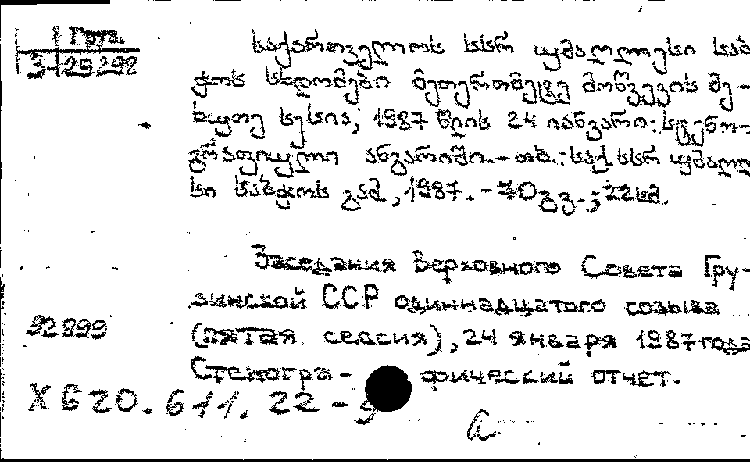 Груз.
3-29292
საქართველოს სსრ უმაღლესი საბ
ჭოს სხდომები მეთერთმეტე მოწვევის მე-
ხუთე სესია, 1987 წლის 24 იანვარი: სტენო-
გრაფიული ანგარიში.-თბ.: საქ.სსრ უმაღლ
სი საბჭოს გამ, 1987.-70გვ.; 22სმ.
Заседания Верховного Совета Гру-
зинской ССР одиннадцатого созыва
92899
(пятая сессия), 24 января 1987 года
Стеногра- фический отчет.
Х620.611.22-
a